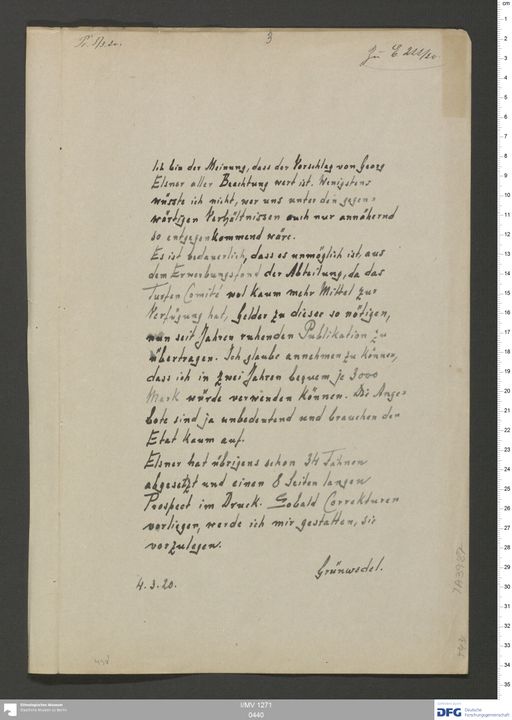 3
Pr. 5/3.20.
Zu E 222/20.
Ich bin der Meinung, dass der Vorschlag von Georg
Elsner aller Beachtung wert ist. Wenigstens
wüsste ich nicht, wer uns unter den gegen=
wärtigen Verhältnissen auch nur annähernd
so entgegenkommend wäre.
Es ist bedauerlich, dass es unmöglich ist, aus
dem Erwerbungsfond der Abteilung, da das
Turfan Comité wol kaum mehr Mittel zur
Verfügung hat, Gelder zu dieser so nötigen,
nun seit Jahren ruhenden Publikation zu
übertragen. Ich glaube annehmen zu können,
dass ich in zwei Jahren bequem je 3000
Mark würde verwenden können. Die Ange-
bote sind ja unbedeutend und brauchen den
Etat kaum auf.
Elsner hat übrigens schon 34 Fahnen
abgesetzt und einen 8 Seiten langen
Prospect im Druck. Sobald Correkturen
vorliegen, werde ich mir gestatten, sie
vorzulegen.
Grünwedel.
4.3.20.
Ethnologisches Museum
Staatliche Museen zu Berlin
I/MV 1271
0440
DFG Deutsche
Forschungsgemeinschaft